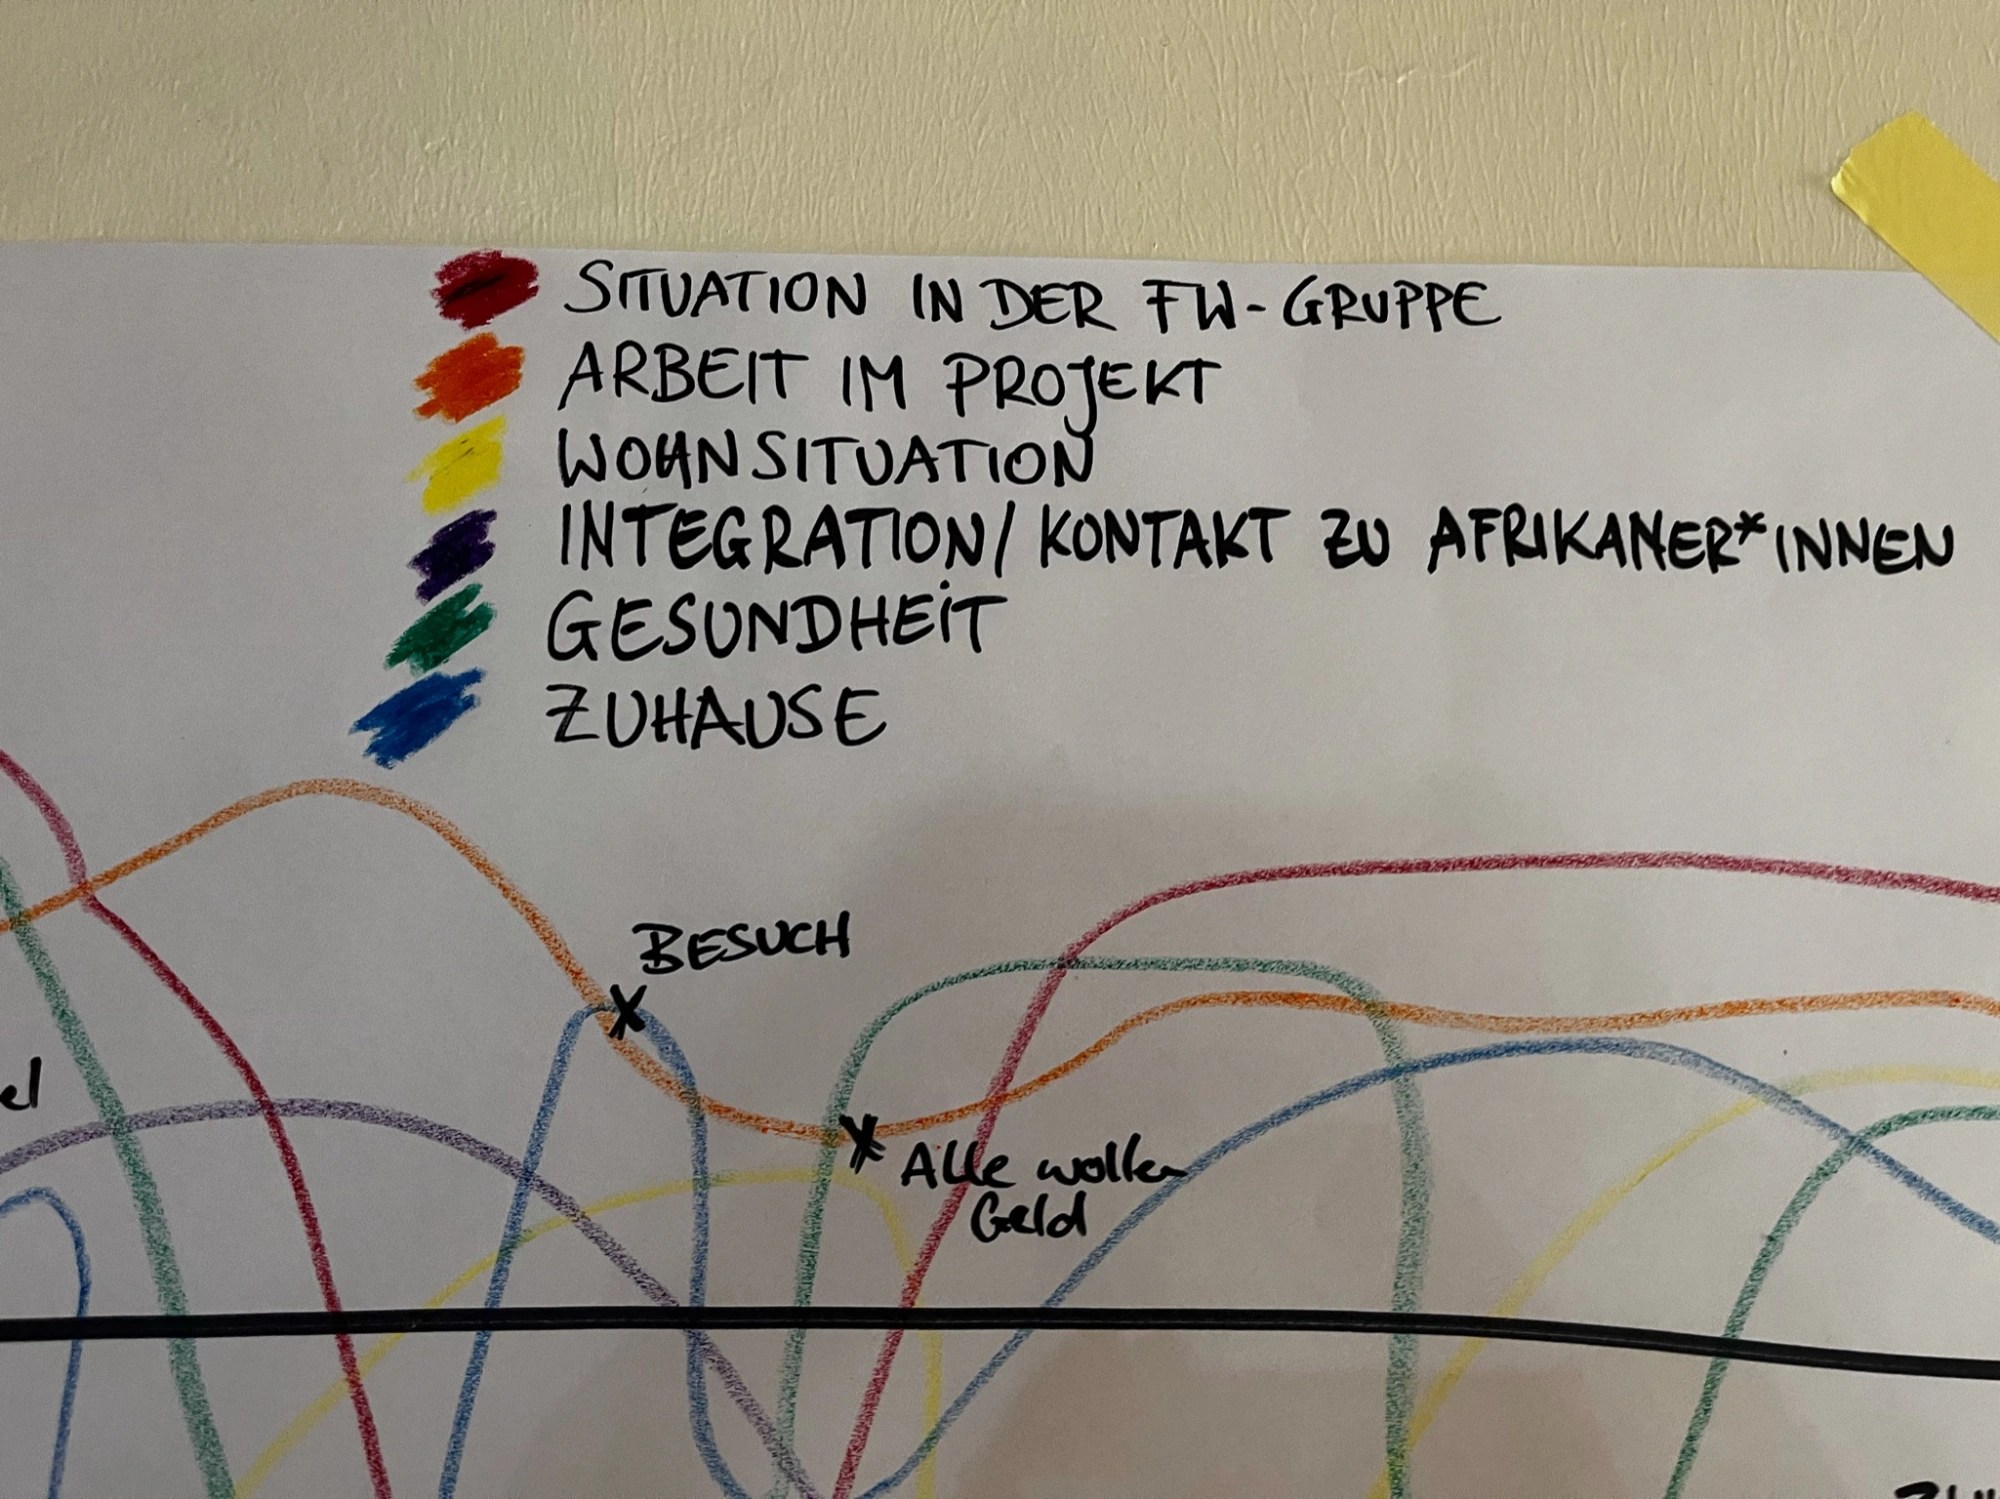 SITUATION IN DER FW-GRUPPE
ARBEIT IM PROJEKT
WOHNSITUATION
INTEGRATION/KONTAKT ZU AFRIKANER*INNEN
GESUNDHEIT
ZUHAUSE
BESUCH
el
Alle wollen
Geld